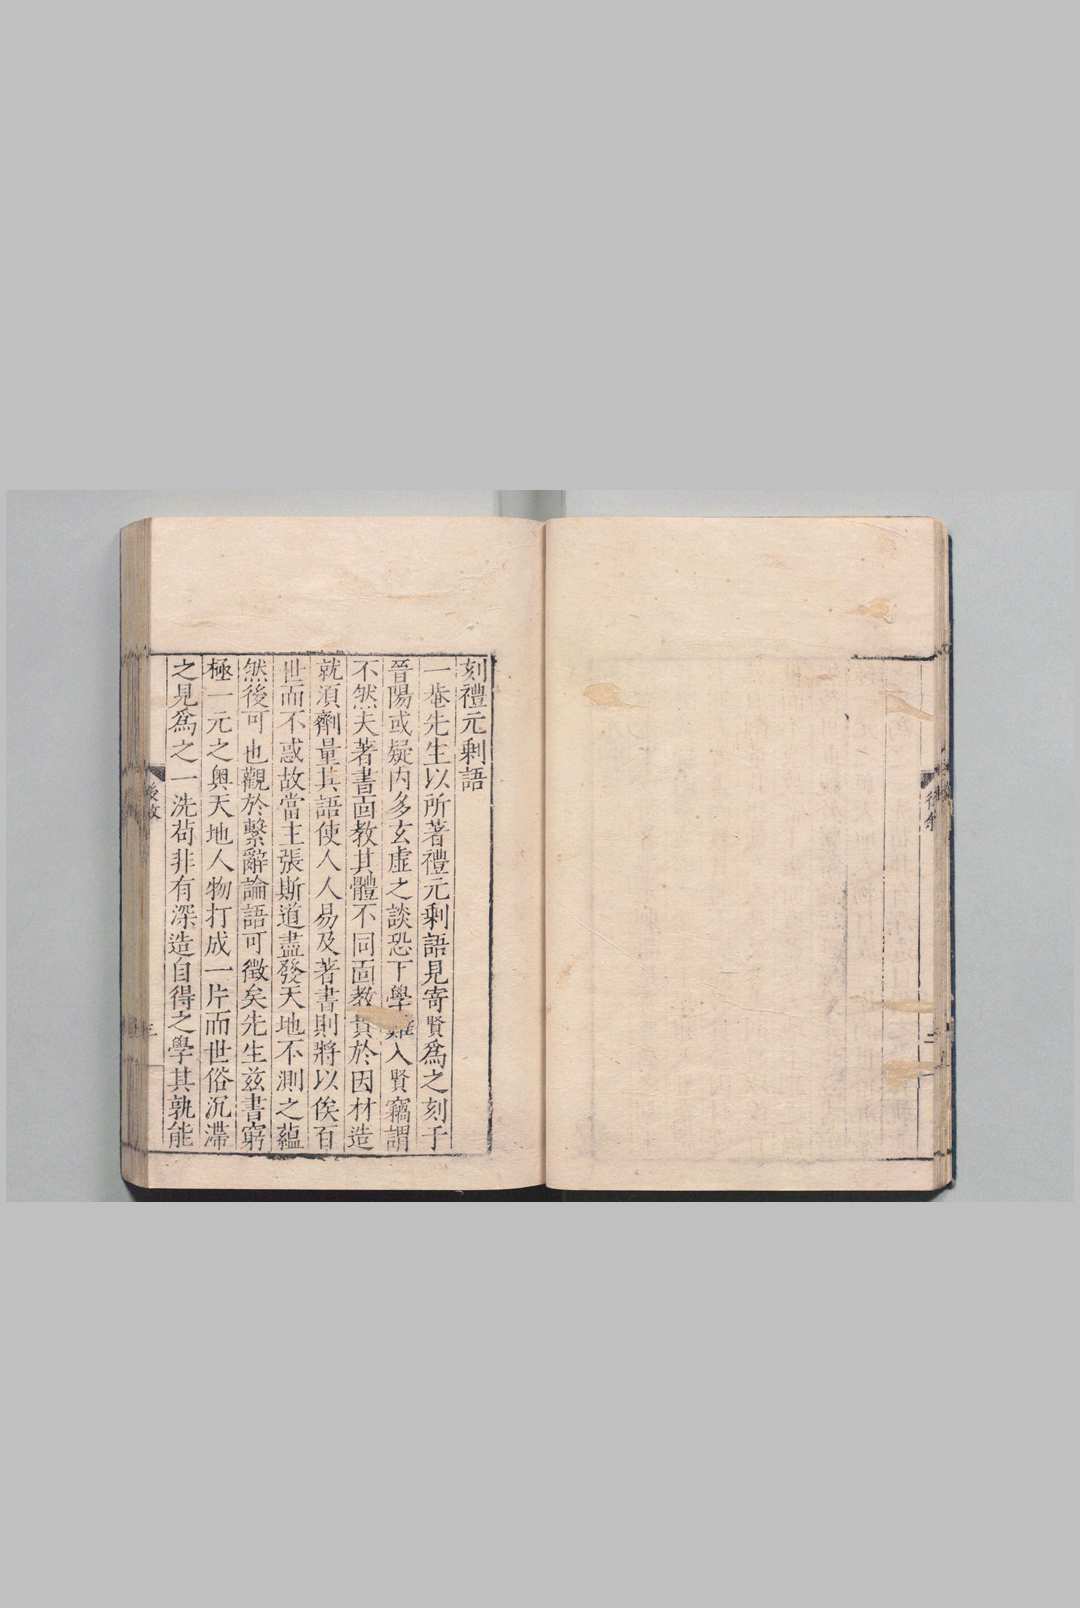 刻禮元剩語
一菴先生以所著禮元剩語見寄賢爲之刻于
晉陽或疑内多玄虛之談恐下學難入賢竊謂
不然夫著書面教其體不同面教貴於因材造
就須劑量其語使人人易及著書則將以俟百
世而不惑故當主張斯道盡發天地不測之蘊
然後可也觀於繫辭論語可徵矣先生兹書窮
極一元之奥天地人物打成一片而世俗沉滯
之見爲之一洗茍非有深造自得之學其孰能
後敘
三